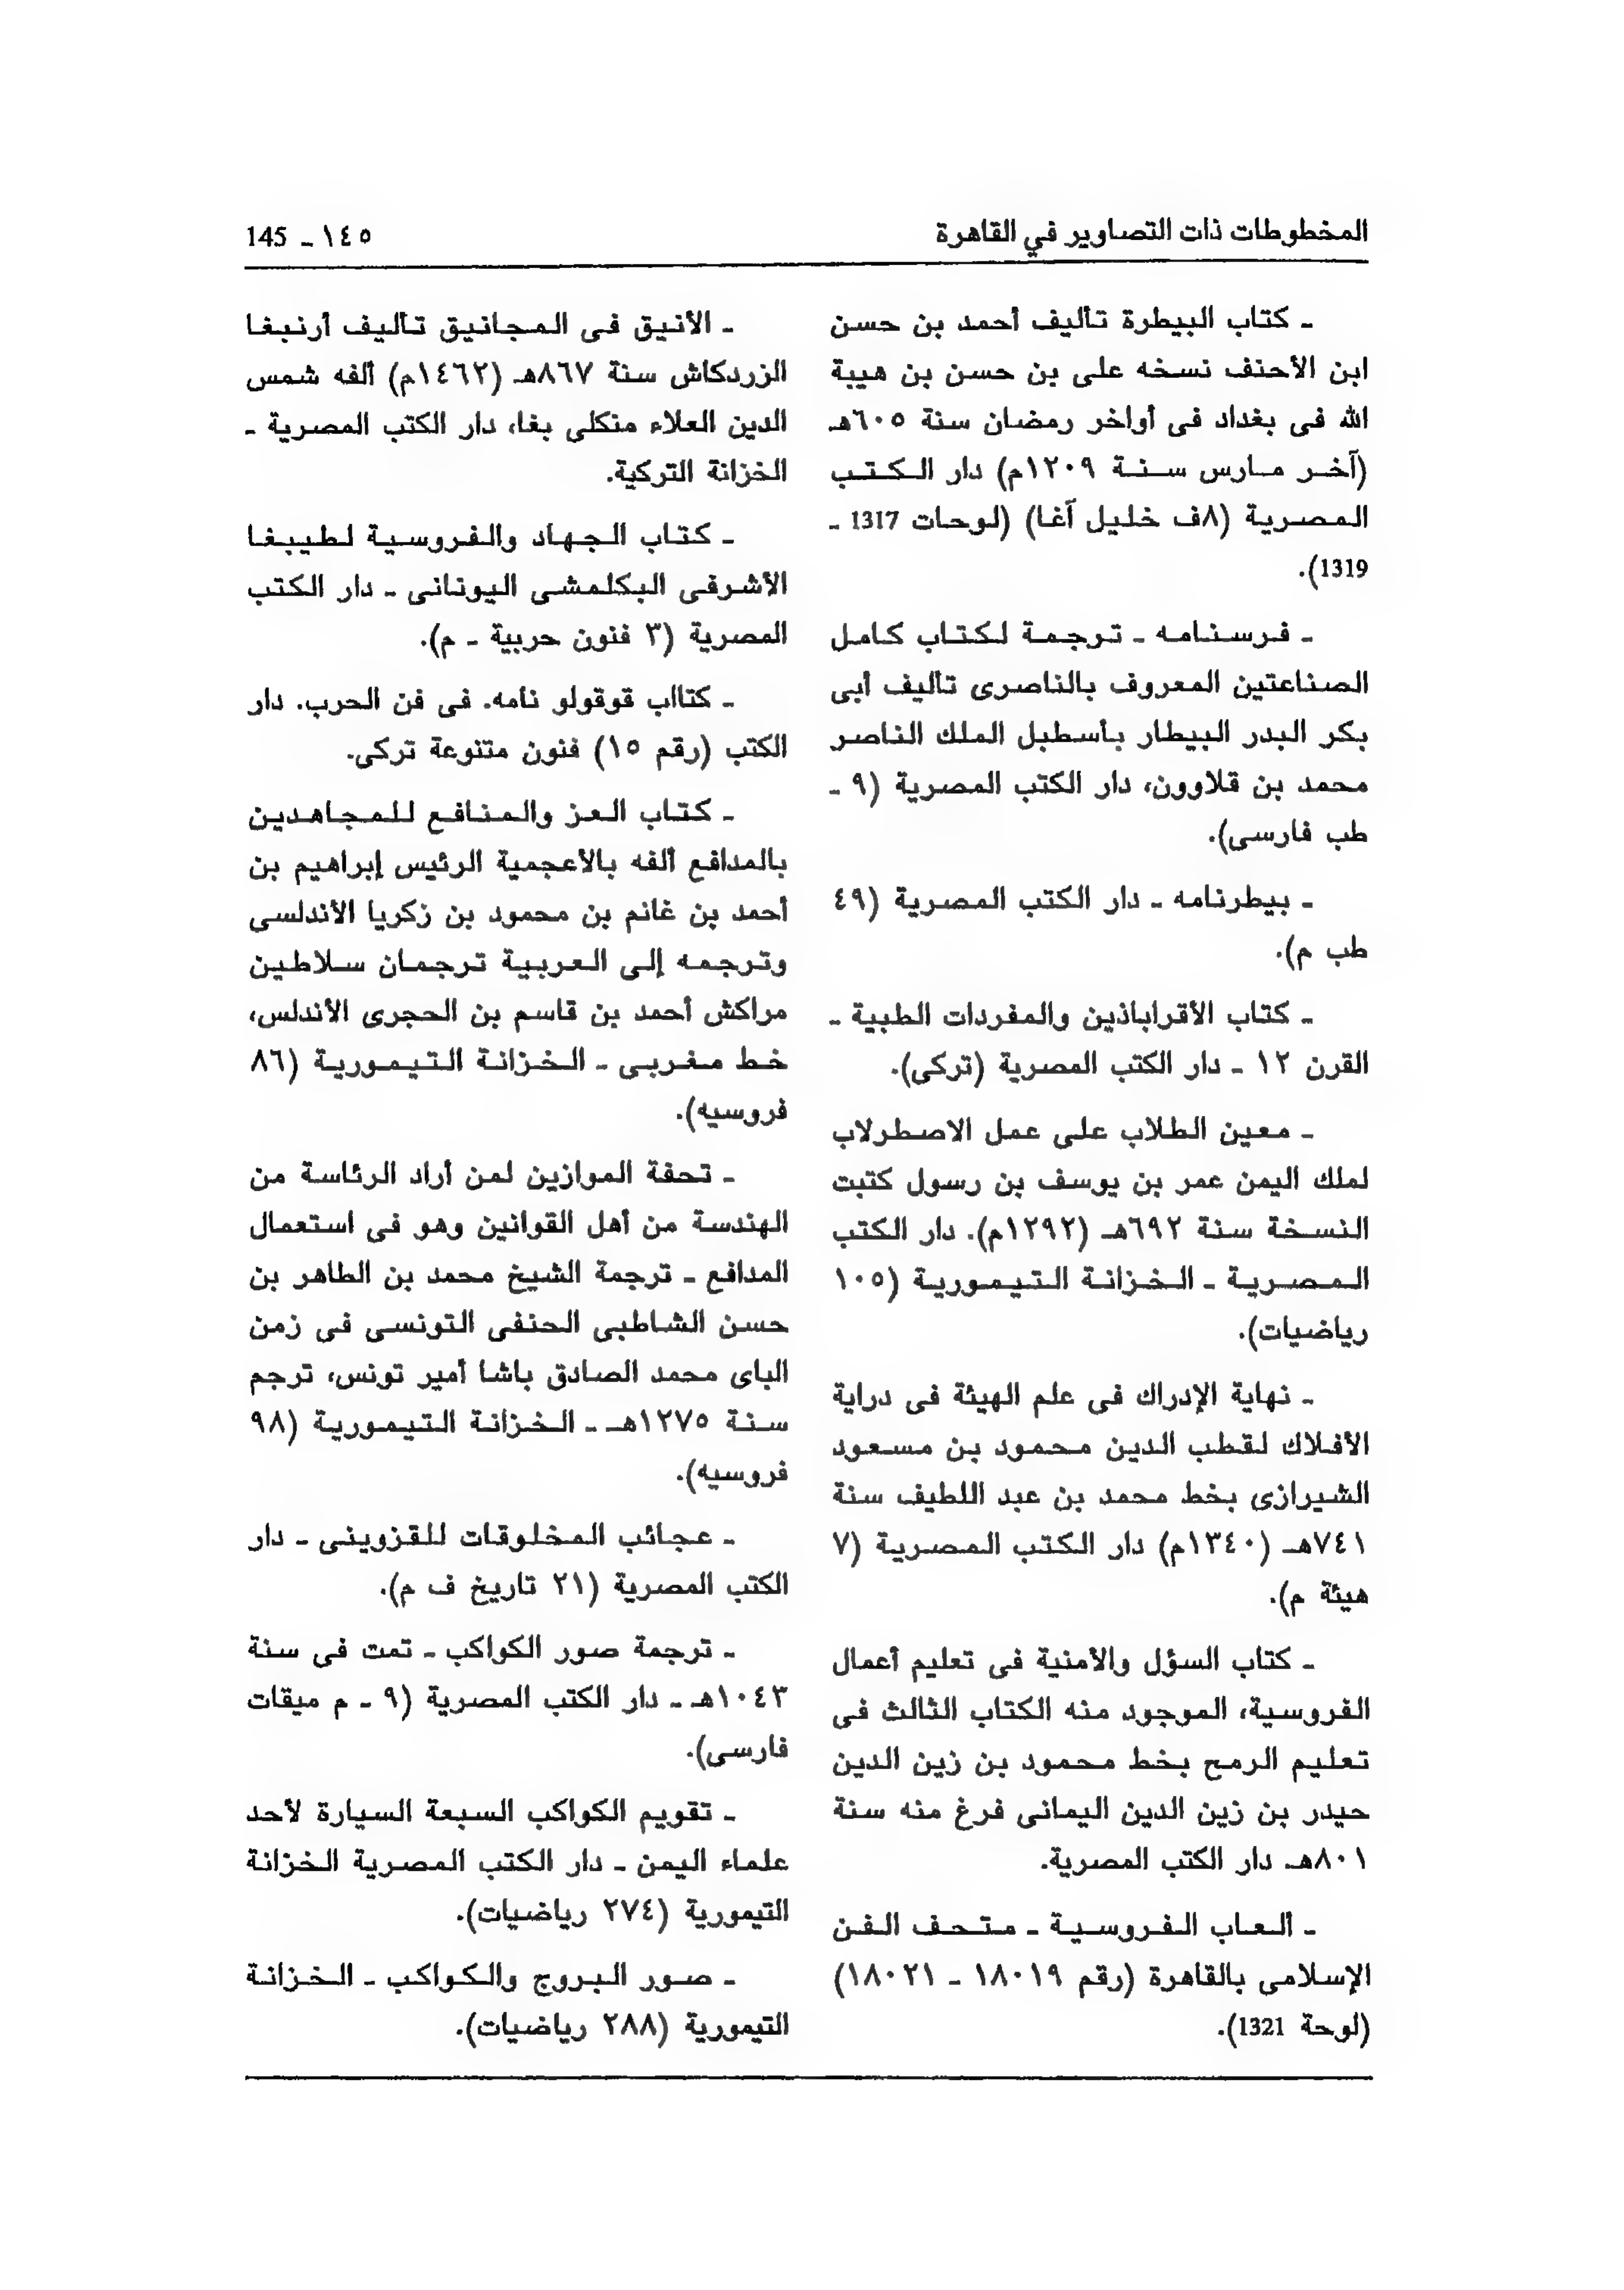 المخطوطات ذات التصاوير في القاهرة
١٤٥ ـ 145
ـ كتاب البيطرة تأليف أحمد بن حسن
ابن الأحنف نسخه على بن حسن بن هيبة
الله فى بغداد فى أواخر رمضان سنة ٦٠٥هـ
(آخر مارس سنة ١٢٠٩م) دار الكتب
المصرية (٨ف خليل آغا) (لوحات 1317 ـ
1319).
ـ فرسنامه ـ ترجمة لكتاب كامل
الصناعتين المعروف بالناصرى تأليف أبى
بكر البدر البيطار بأسطبل الملك الناصر
محمد بن قلاوون، دار الكتب المصرية (٩ ـ
طب فارسى).
ـ بيطرنامه ـ دار الكتب المصرية (٤٩
طب م).
ـ كتاب الأقراباذين والمفردات الطبية ـ
القرن ١٢ ـ دار الكتب المصرية (تركى).
ـ معين الطلاب على عمل الاصطرلاب
لملك اليمن عمر بن يوسف بن رسول كتبت
النسخة سنة ٦٩٢هـ (١٢٩٢م). دار الكتب
المصرية ـ الخزانة التيمورية (١٠٥
رياضيات).
ـ نهاية الإدراك فى علم الهيئة فى دراية
الأفلاك لقطب الدين محمود بن مسعود
الشيرازى بخط محمد بن عبد اللطيف سنة
٧٤١هـ (١٣٤٠م) دار الكتب المصرية (٧
هيئة م).
ـ كتاب السؤل والأمنية فى تعليم أعمال
الفروسية، الموجود منه الكتاب الثالث فى
تعليم الرمح بخط محمود بن زين الدين
حيدر بن زين الدين اليمانى فرغ منه سنة
٨٠١هـ دار الكتب المصرية.
ـ ألعاب الفروسية ـ متحف الفن
الإسلامى بالقاهرة (رقم ١٨٠١٩ ـ ١٨٠٢١)
(لوحة 1321).
ـ الأنيق فى المجانيق تأليف أرنبغا
الزردكاش سنة ٨٦٧هـ (١٤٦٢م) ألفه شمس
الدين العلاء منكلى بغا، دار الكتب المصرية ـ
الخزانة التركية.
ـ كتاب الجهاد والفروسية لطيبغا
الأشرفى البكلمشى اليونانى ـ دار الكتب
المصرية (٣ فنون حربية ـ م).
ـ كتااب قوقولو نامه. فى فن الحرب. دار
الكتب (رقم ١٥) فنون متنوعة تركى.
ـ كتاب العز والمنافع للمجاهدين
بالمدافع ألفه بالأعجمية الرئيس إبراهيم بن
أحمد بن غانم بن محمود بن زكريا الأندلسى
وترجمه إلى العربية ترجمان سلاطين
مراكش أحمد بن قاسم بن الحجرى الأندلس،
خط مغربى ـ الخزانة التيمورية (٨٦
فروسيه).
ـ تحفة الموازين لمن أراد الرئاسة من
الهندسة من أهل القوانين وهو فى استعمال
المدافع ـ ترجمة الشيخ محمد بن الطاهر بن
حسن الشاطبى الحنفى التونسى فى زمن
الباى محمد الصادق باشا أمير تونس، ترجم
سنة ١٢٧٥هـ ـ الخزانة التيمورية (٩٨
فروسيه).
ـ عجائب المخلوقات للقزوينى ـ دار
الكتب المصرية (٢١ تاريخ ف م).
ـ ترجمة صور الكواكب ـ تمت فى سنة
١٠٤٣هـ ـ دار الكتب المصرية (٩ ـ م ميقات
فارسى).
ـ تقويم الكواكب السبعة السيارة لأحد
علماء اليمن ـ دار الكتب المصرية الخزانة
التيمورية (٢٧٤ رياضيات).
ـ صور البروج والكواكب ـ الخزانة
التيمورية (٢٨٨ رياضيات).